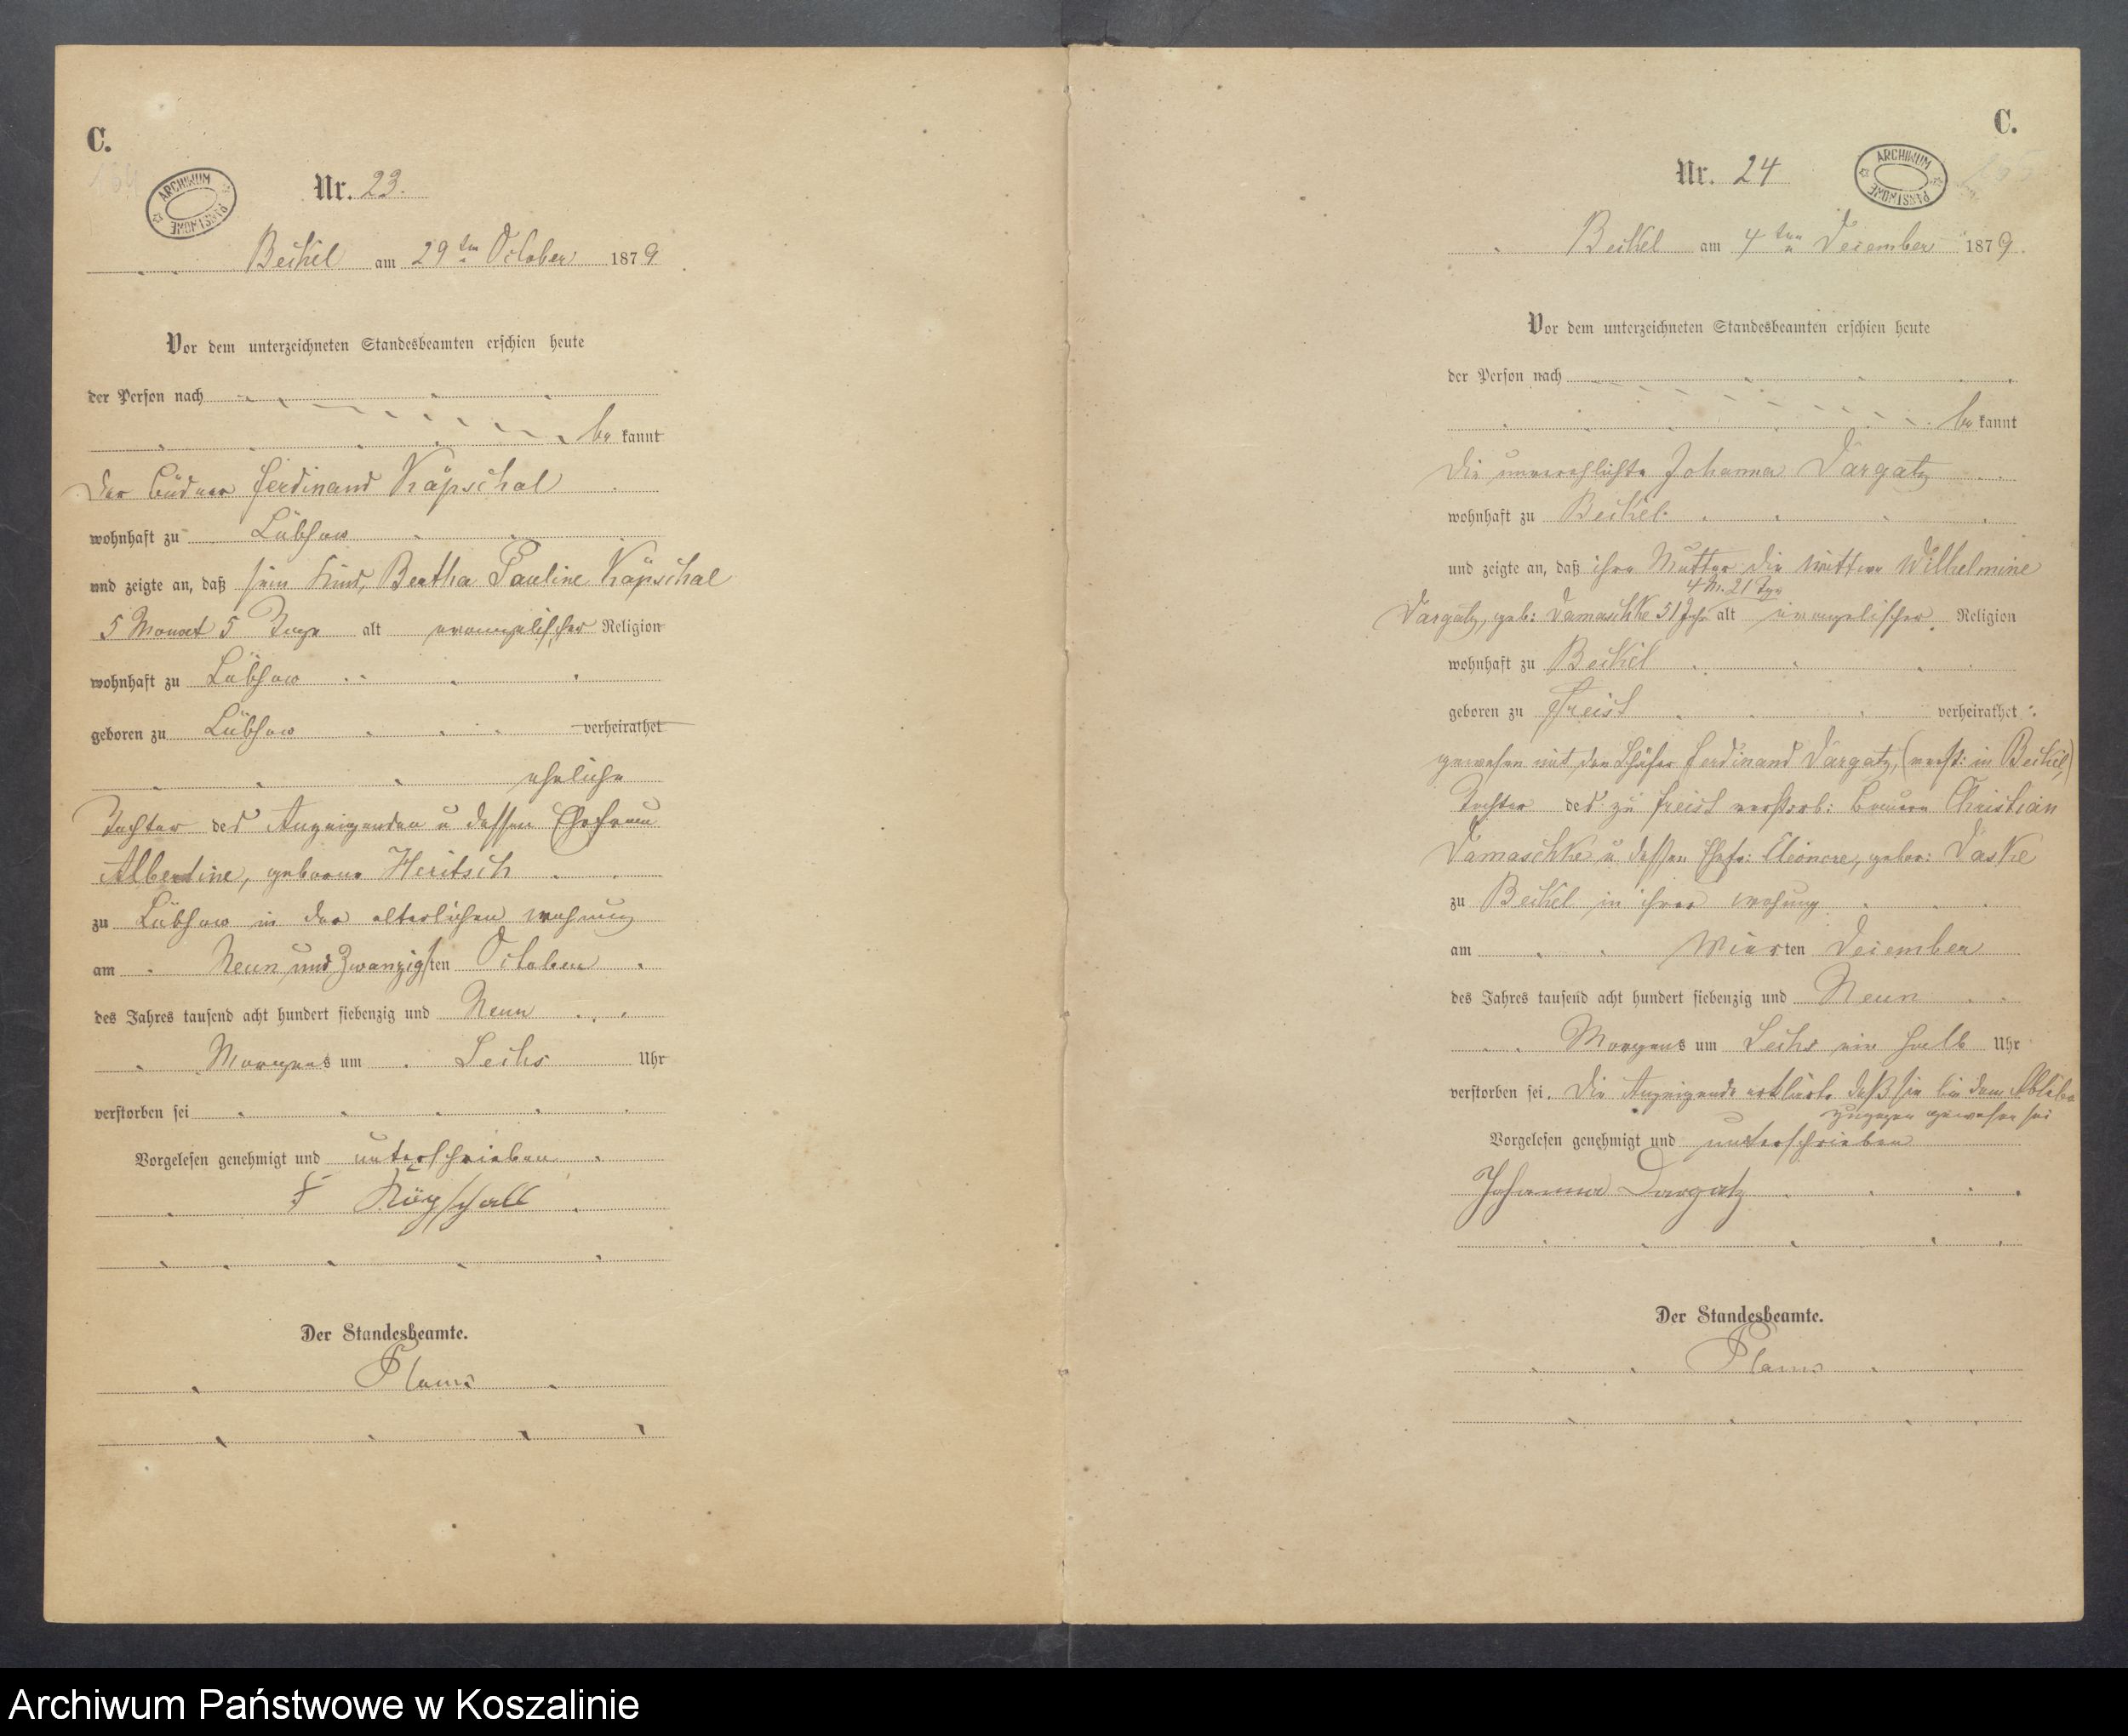 C.
ARCHIWUM PAŃSTWOWE
Nr. 23.
Beckel am 29ten October 1879
Vor dem unterzeichneten Standesbeamten erschien heute
der Person nach
be kannt
der Büdner Ferdinand Käpschal
wohnhaft zu Lübsow
und zeigte an, daß sein Kind, Bertha Pauline Käpschal
5 Monat 5 Tage alt evangelischer Religion
wohnhaft zu Lübsow
geboren zu Lübsow verheirathet
eheliche
Tochter des Anzeigenden u dessen Ehefrau
Albertine, geborne Heritsch
zu Lübsow in der elterlichen Wohnung
am Neun und Zwanzigsten October
des Jahres tausend acht hundert siebenzig und Neun
Morgens um Sechs Uhr
verstorben sei
Vorgelesen genehmigt und unterschrieben
F
Der Standesbeamte.
C.
ARCHIWUM PAŃSTWOWE
Nr. 24
Beckel am 4ten December 1879.
Vor dem unterzeichneten Standesbeamten erschien heute
der Person nach
be kannt
die unverehlichte Johanna Dargatz
wohnhaft zu Beckel.
und zeigte an, daß ihre Mutter die Wittwe Wilhelmine
4 M. 21 Tge
Dargatz, geb: Damaschke 51 Jahr alt evangelischer Religion
wohnhaft zu Beckel
geboren zu Freist verheirathet
gewesen mit dem Schäfer Ferdinand Dargatz, (verst: in Beckel,)
Tochter des zu Freist verstorb: Bauern Christian
Damaschke u dessen Ehefr: Eleonore, gebor: Daske
zu Beckel in ihrer Wohnung
am Vierten December
des Jahres tausend acht hundert siebenzig und Neun
Morgens um Sechs ein halb Uhr
verstorben sei. Die Anzeigende erklärte daß sie bei dem Ableben
zugegen gewesen sei
Vorgelesen genehmigt und unterschrieben
Johanna Dargatz
Der Standesbeamte.
Archiwum Państwowe w Koszalinie